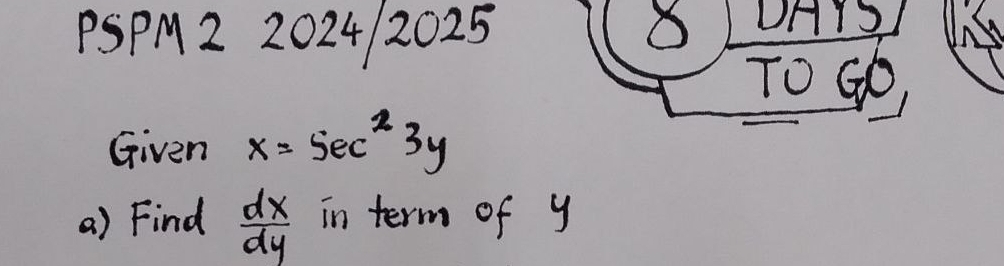 PSPM 2 2024/2025
8 DAYS
TO GO
Given x = Sec² 3y
a) Find dx/dy in term of y